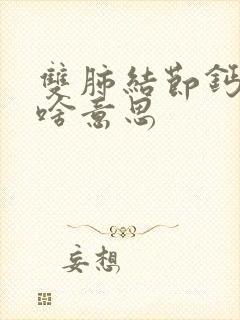 雙肺結節鈣
啥意思
妄想